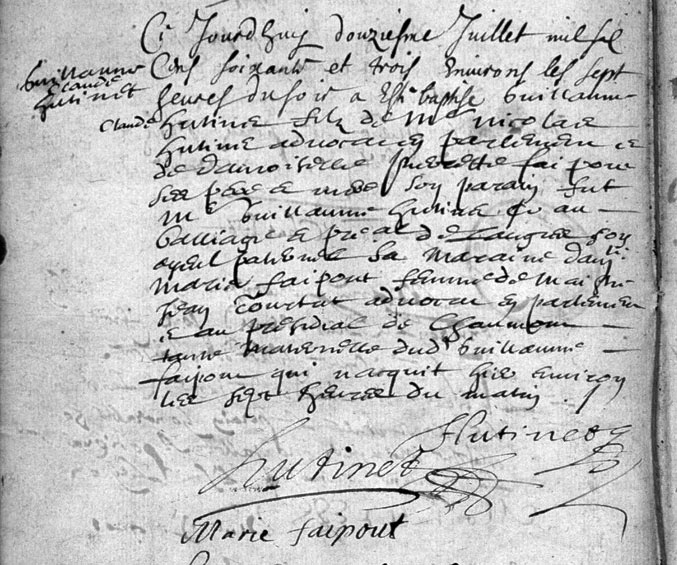 Ce Jourdhuy douziesme Juillet mil six
Cens soixante et trois Environs les sept
heures du soir a Esté baptise Guillaume
Guillaume
Claude
Hutinet
Claude
Hutinet filz de Me Nicolas
Hutinet advocat en parlement et
de damoiselle faipout
ses pere et mere son parain fut
Me Guillaume Hutinet au
Balliage et p̃sidal de Langres son
ayeul paternel sa maraine
Marie faipout femme de Maistre
Jean Tourtat advocat en parlement
et au presidial de Chaumont
tante maternelle dud Guillaume
faipout qui nacquit hier environ
les sept heures du matin
Hutinet
Hutinet
Marie faipout